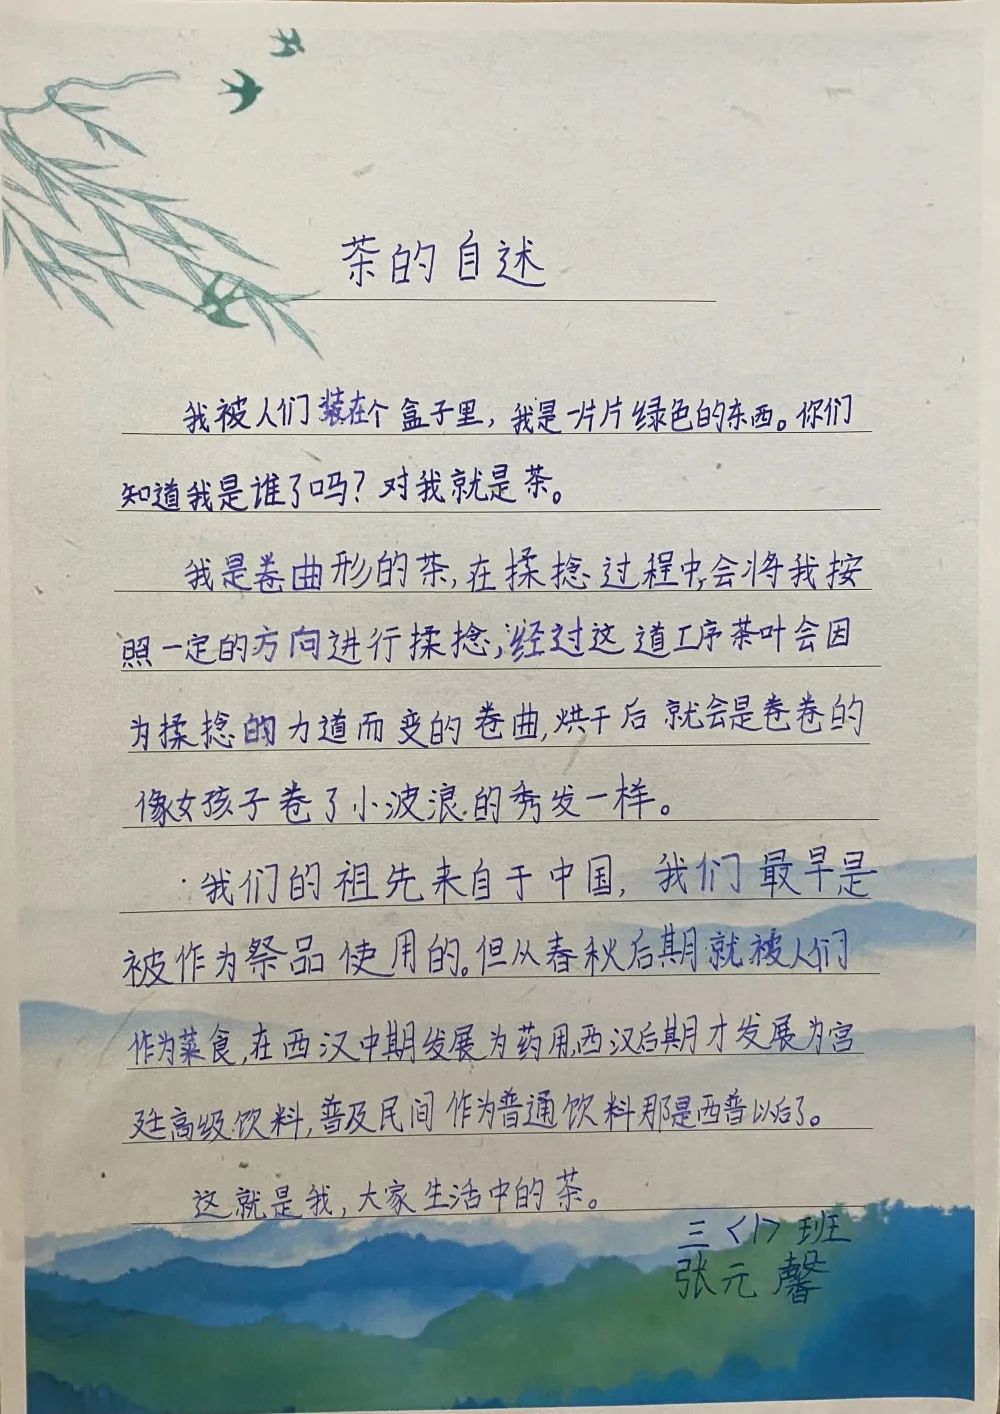 茶的自述
我被人们装在个盒子里，我是一片片绿色的东西。你们
知道我是谁了吗？对我就是茶。
我是卷曲形的茶，在揉捻过程中，会将我按
照一定的方向进行揉捻，经过这道工序茶叶会因
为揉捻的力道而变的卷曲，烘干后就会是卷卷的
像女孩子卷了小波浪的秀发一样。
我们的祖先来自于中国，我们最早是
被作为祭品使用的。但从春秋后期就被人们
作为菜食，在西汉中期发展为药用，西汉后期才发展为宫
廷高级饮料，普及民间作为普通饮料那是西普以后了。
这就是我，大家生活中的茶。
三〈1〉班
张元馨